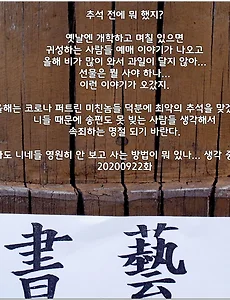 추석 전에 뭐 했지?
옛날엔 개학하고 며칠 있으면
귀성하는 사람들 예매 이야기가 나오고
올해 비가 많이 와서 과일이 달지 않아...
선물은 뭘 사야 하나...
이런 이야기가 오갔지.
올해는 코로나 퍼트린 미친놈들 덕분에 최악의 추석을 맞겠
니들 때문에 송편도 못 빚는 사람들 생각해서
속죄하는 명절 되기 바란다.
도 니네들 영원히 안 보고 사는 방법이 뭐 있나... 생각 중
20200922화
書藝